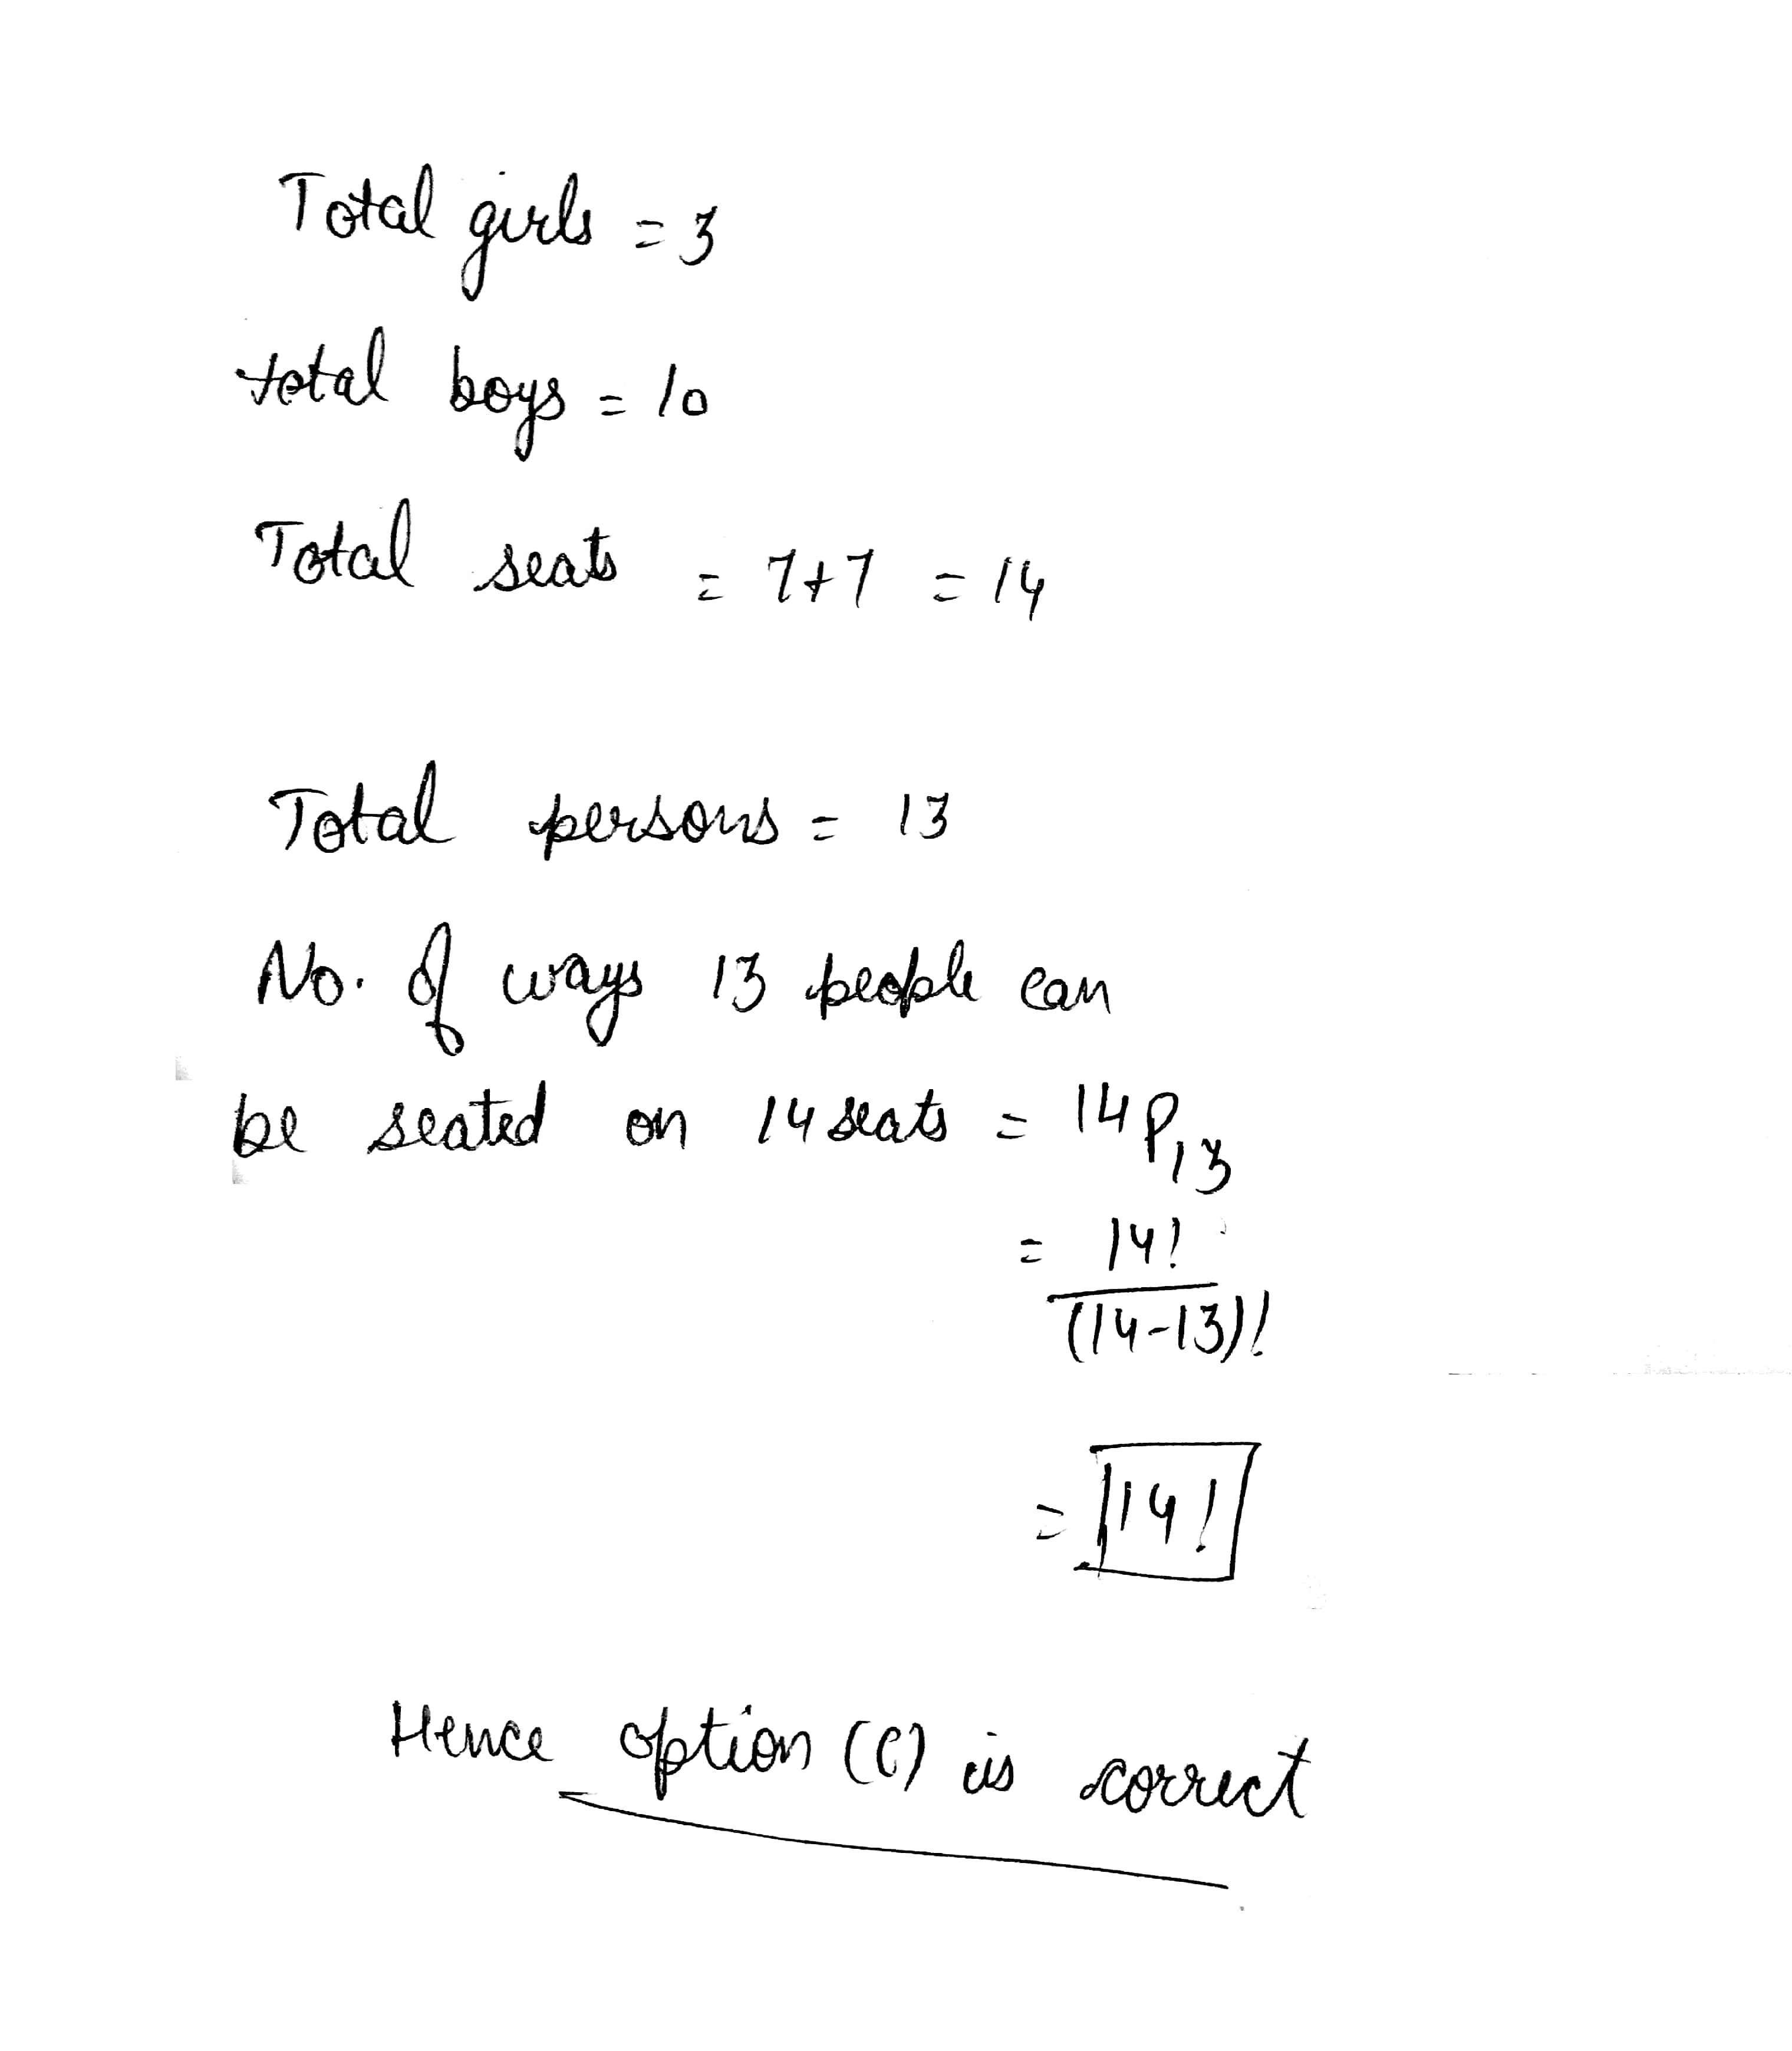 Total girls = 3
total boys = 10
Total seats = 7+7 = 14
Total persons = 13
No. of ways 13 people can
be seated on 14 seats = 14P13
= 14!
(14-13)!
= 14!
Hence option (C) is correct